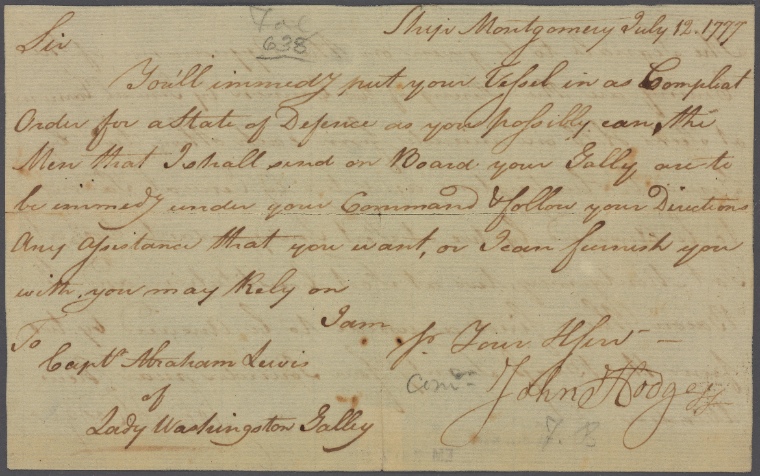 638
Ship Montgomery July 12. 1777
Sir
You'll immedy put your Vessel in as Compleat
Order for a State of Defence as you possibly can, the
Men that I shall send on Board your Gally are to
be immedy under your Command & follow your Directions
Any Assistance that you want, or I can furnish you
with, you may Rely on
I am
Sr Your Hser
John Hodge
To
Captn Abraham Lewis
of
Lady Washingston Gally